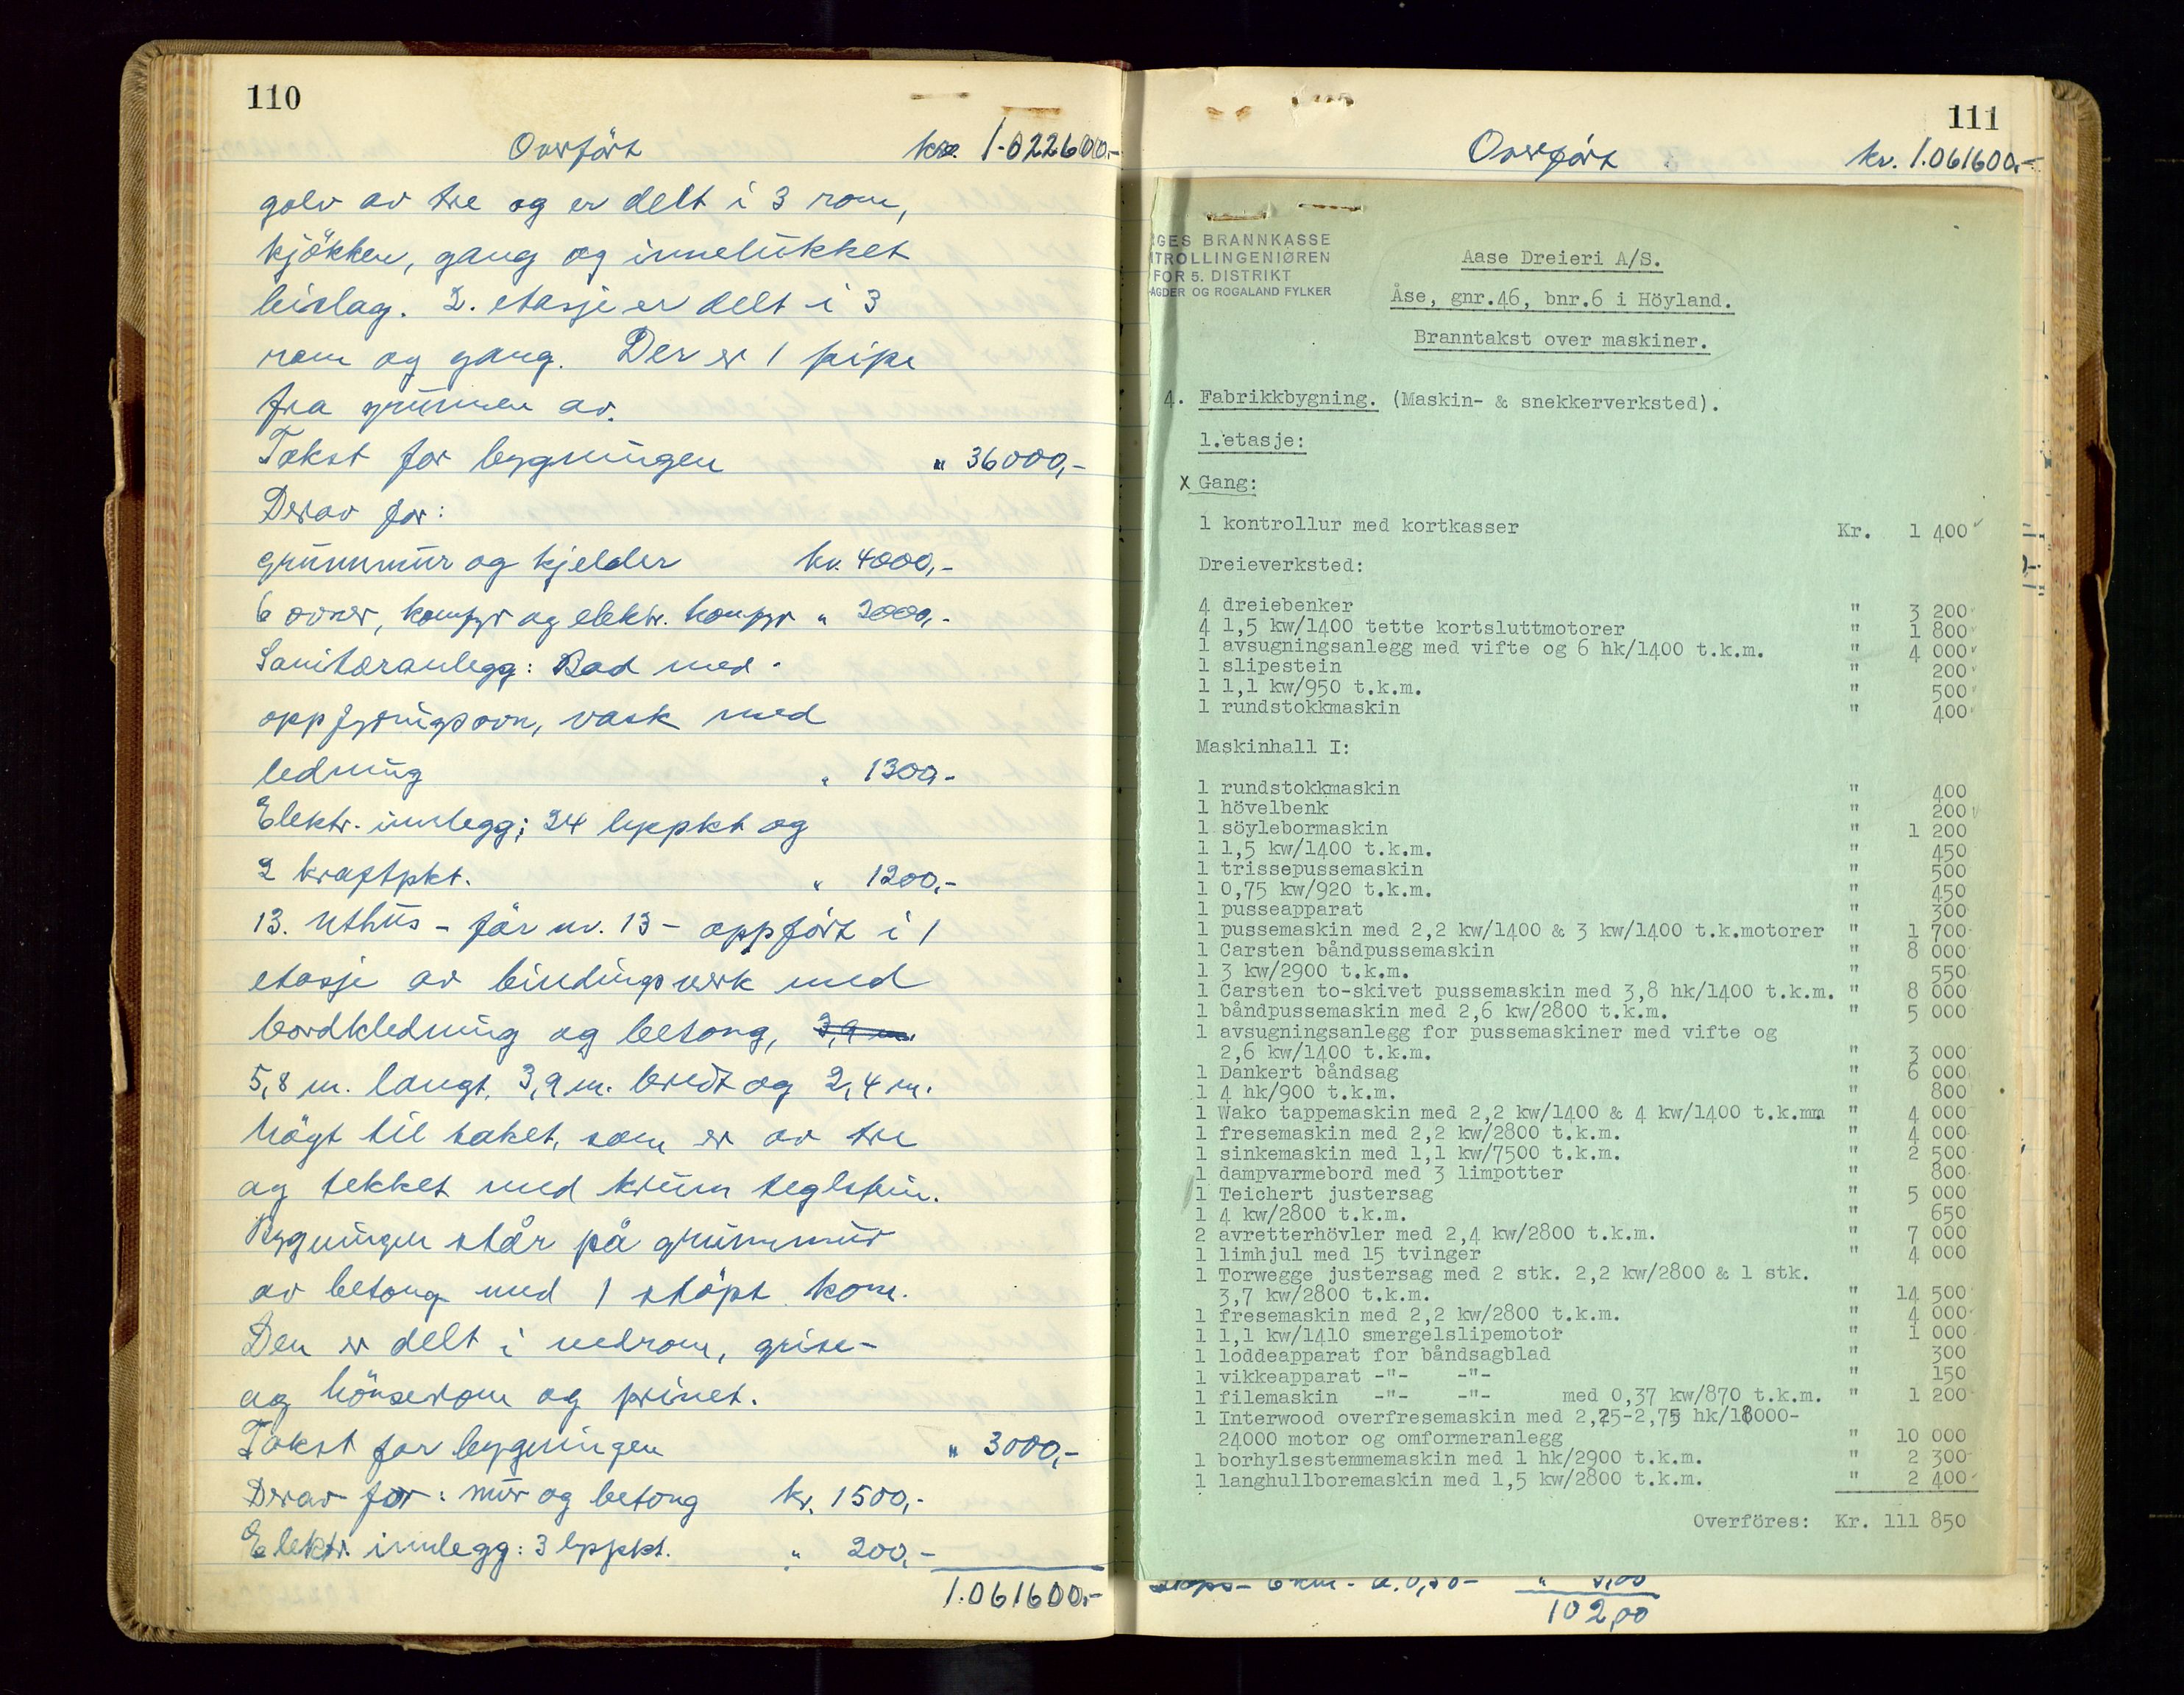 110
Overført kr. 1.022600,-
golv av tre og er delt i 3 rom,
kjökken, gang og innelukket
bislag. 2. etasje er delt i 3
rom og gang. Der er 1 pipe
fra grunnen av.
Takst for bygningen " 36000,-
Derav for:
grunnmur og kjelder kr. 4000,-
6 ovner, komfyr og elektr. komfyr " 2000,-
Sanitæranlegg: Bad med
oppfyringsovn, vask med
ledning " 1300,-
Elektr. innlegg; 24 lyspkt og
2 kraftpkt. " 1200,-
13. Uthus - før nr. 13 - oppført i 1
etasje av bindingsverk med
bordkledning og betong, 3,9 m.
5,8 m. langt, 3,9 m. bredt og 2,4 m.
högt til taket, som er av tre
og tekket med krum teglstein.
Bygningen står på grunnmur
av betong med 1 støpt kom.
Den er delt i vedrom, grise-
og hönserom og privet.
Takst for bygningen " 3000,-
Derav for: mur og betong kr. 1500,-
Elektr. innlegg: 3 lyspkt. " 200,-
1.061600,-
111
Overført kr. 1.061600,-
GES BRANNKASSE
TROLLINGENIØREN
FOR 5. DISTRIKT
AGDER OG ROGALAND FYLKER
Aase Dreieri A/S.
Åse, gnr.46, bnr.6 i Höyland.
Branntakst over maskiner.
4. Fabrikkbygning. (Maskin- & snekkerverksted).
1.etasje:
x Gang:
1 kontrollur med kortkasser Kr. 1 400
Dreieverksted:
4 dreiebenker " 3 200
4 1,5 kw/1400 tette kortsluttmotorer " 1 800
1 avsugningsanlegg med vifte og 6 hk/1400 t.k.m. " 4 000
1 slipestein " 200
1 1,1 kw/950 t.k.m. " 500
1 rundstokkmaskin " 400
Maskinhall I:
1 rundstokkmaskin " 400
1 hövelbenk " 200
1 söylebormaskin " 1 200
1 1,5 kw/1400 t.k.m. " 450
1 trissepussemaskin " 500
1 0,75 kw/920 t.k.m. " 450
1 pusseapparat " 300
1 pussemaskin med 2,2 kw/1400 & 3 kw/1400 t.k.motorer " 1 700
1 Carsten båndpussemaskin " 8 000
1 3 kw/2900 t.k.m. " 550
1 Carsten to-skivet pussemaskin med 3,8 hk/1400 t.k.m. " 8 000
1 båndpussemaskin med 2,6 kw/2800 t.k.m. " 5 000
1 avsugningsanlegg for pussemaskiner med vifte og
2,6 kw/1400 t.k.m. " 3 000
1 Dankert båndsag " 6 000
1 4 hk/900 t.k.m. " 800
1 Wako tappemaskin med 2,2 kw/1400 & 4 kw/1400 t.k.mm " 4 000
1 fresemaskin med 2,2 kw/2800 t.k.m. " 4 000
1 sinkemaskin med 1,1 kw/7500 t.k.m. " 2 500
1 dampvarmebord med 3 limpotter " 800
1 Teichert justersag " 5 000
1 4 kw/2800 t.k.m. " 650
2 avretterhövler med 2,4 kw/2800 t.k.m. " 7 000
1 limhjul med 15 tvinger " 4 000
1 Torwegge justersag med 2 stk. 2,2 kw/2800 & 1 stk.
3,7 kw/2800 t.k.m. " 14 500
1 fresemaskin med 2,2 kw/2800 t.k.m. " 4 000
1 1,1 kw/1410 smergelslipemotor " 1 000
1 loddeapparat for båndsagblad " 300
1 vikkeapparat -"- -"- " 150
1 filemaskin -"- -"- med 0,37 kw/870 t.k.m. " 1 200
1 Interwood overfresemaskin med 2,25-2,75 hk/18000-
24000 motor og omformeranlegg " 10 000
1 borhylsestemmemaskin med 1 hk/2900 t.k.m. " 2 300
1 langhullboremaskin med 1,5 kw/2800 t.k.m. " 2 400
Overföres: Kr. 111 850
102,00